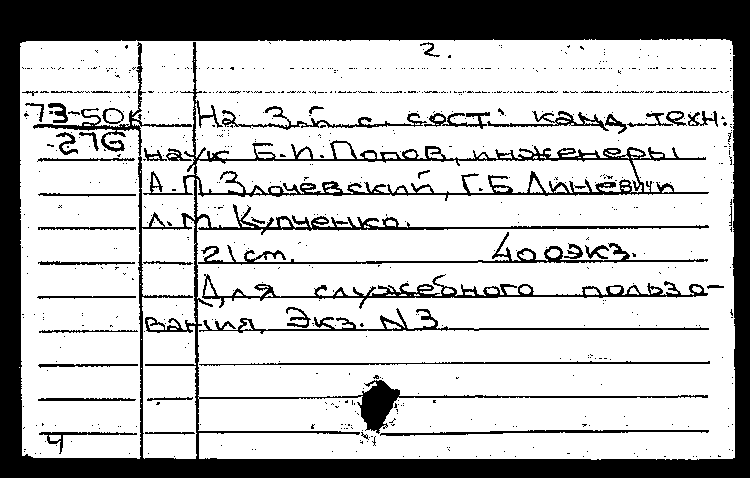 2.
73-50к На 3-й с. сост: канд. техн.
276
наук Б.И.Попов, инженеры
А.П.Злочевский, Г.Б.Линевич
Л.М.Купченко.
21 cm. 400экз.
Для служебного пользо-
вания, Экз. N3.
4